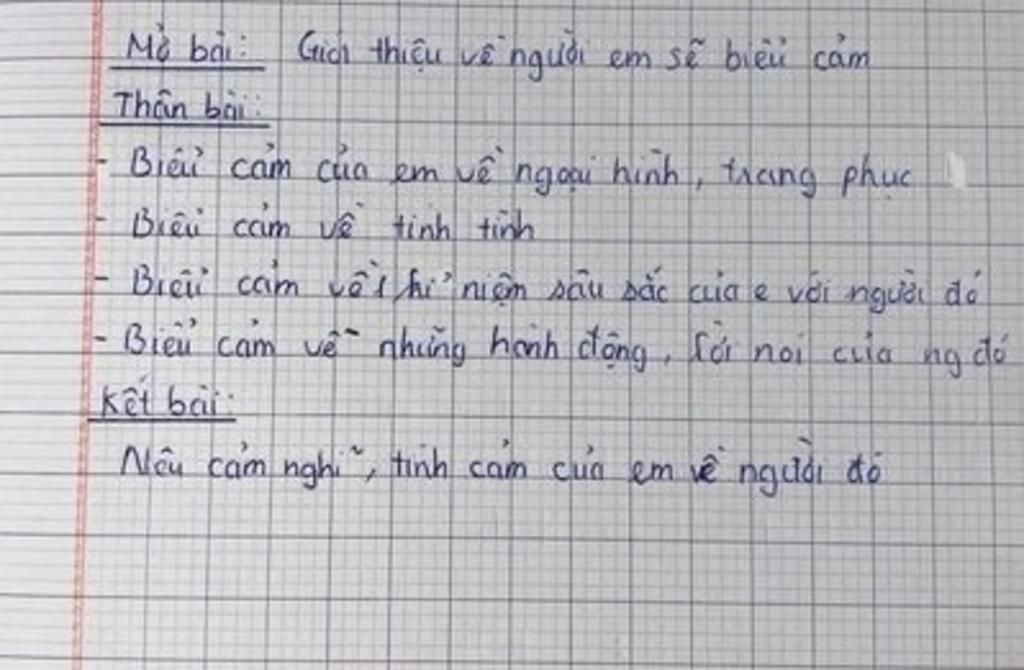 Mở bài: Giới thiệu về người em sẽ biểu cảm
Thân bài:
- Biểu cảm của em về ngoại hình, trang phục
- Biểu cảm về tính tình
- Biểu cảm về 1 kỉ niệm sâu sắc của e với người đó
- Biểu cảm về những hành động, lời nói của ng đó
Kết bài:
Nêu cảm nghĩ, tình cảm của em về người đó